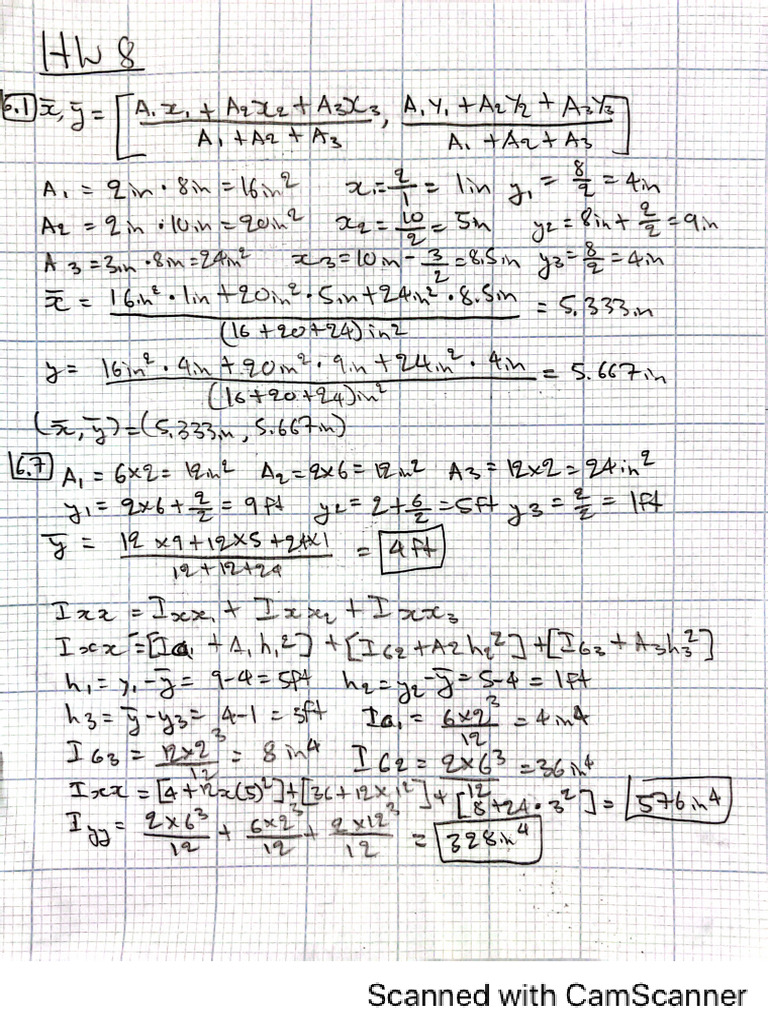 HW 8
6.1 x̄, ȳ = [A₁x₁ + A₂x₂ + A₃x₃ / A₁ + A₂ + A₃, A₁y₁ + A₂y₂ + A₃y₃ / A₁ + A₂ + A₃]
A₁ = 2in · 8in = 16in² x₁ = 2/1 = 1in y₁ = 8/2 = 4in
A₂ = 2in · 10in = 20in² x₂ = 10/2 = 5in y₂ = 8in + 2/2 = 9in
A₃ = 3in · 8in = 24in² x₃ = 10in - 3/2 = 8.5in y₃ = 8/2 = 4in
x̄ = 16in² · 1in + 20in² · 5in + 24in² · 8.5in / (16 + 20 + 24)in² = 5.333in
y = 16in² · 4in + 20in² · 9in + 24in² · 4in / (16 + 20 + 24)in² = 5.667in
(x̄, ȳ) = (5.333in, 5.667in)
6.7 A₁ = 6×2 = 12in² A₂ = 2×6 = 12in² A₃ = 12×2 = 24in²
y₁ = 2×6 + 2/2 = 9ft y₂ = 2 + 6/2 = 5ft y₃ = 2/2 = 1ft
ȳ = 12×9 + 12×5 + 24×1 / 12 + 12 + 24 = 4ft
Ixx = Ixx₁ + Ixx₂ + Ixx₃
Ixx = [IG₁ + A₁h₁²] + [IG₂ + A₂h₂²] + [IG₃ + A₃h₃²]
h₁ = y₁ - ȳ = 9-4 = 5ft h₂ = y₂ - ȳ = 5-4 = 1ft
h₃ = ȳ - y₃ = 4-1 = 3ft IG₁ = 6×2³/12 = 4in⁴
IG₃ = 12×2³/12 = 8in⁴ IG₂ = 2×6³/12 = 36in⁴
Ixx = [4 + 12×(5)²] + [36 + 12×1²] + [8 + 24·3²] = 576in⁴
Iyy = 2×6³/12 + 6×2³/12 + 2×12³/12 = 328in⁴
Scanned with CamScanner